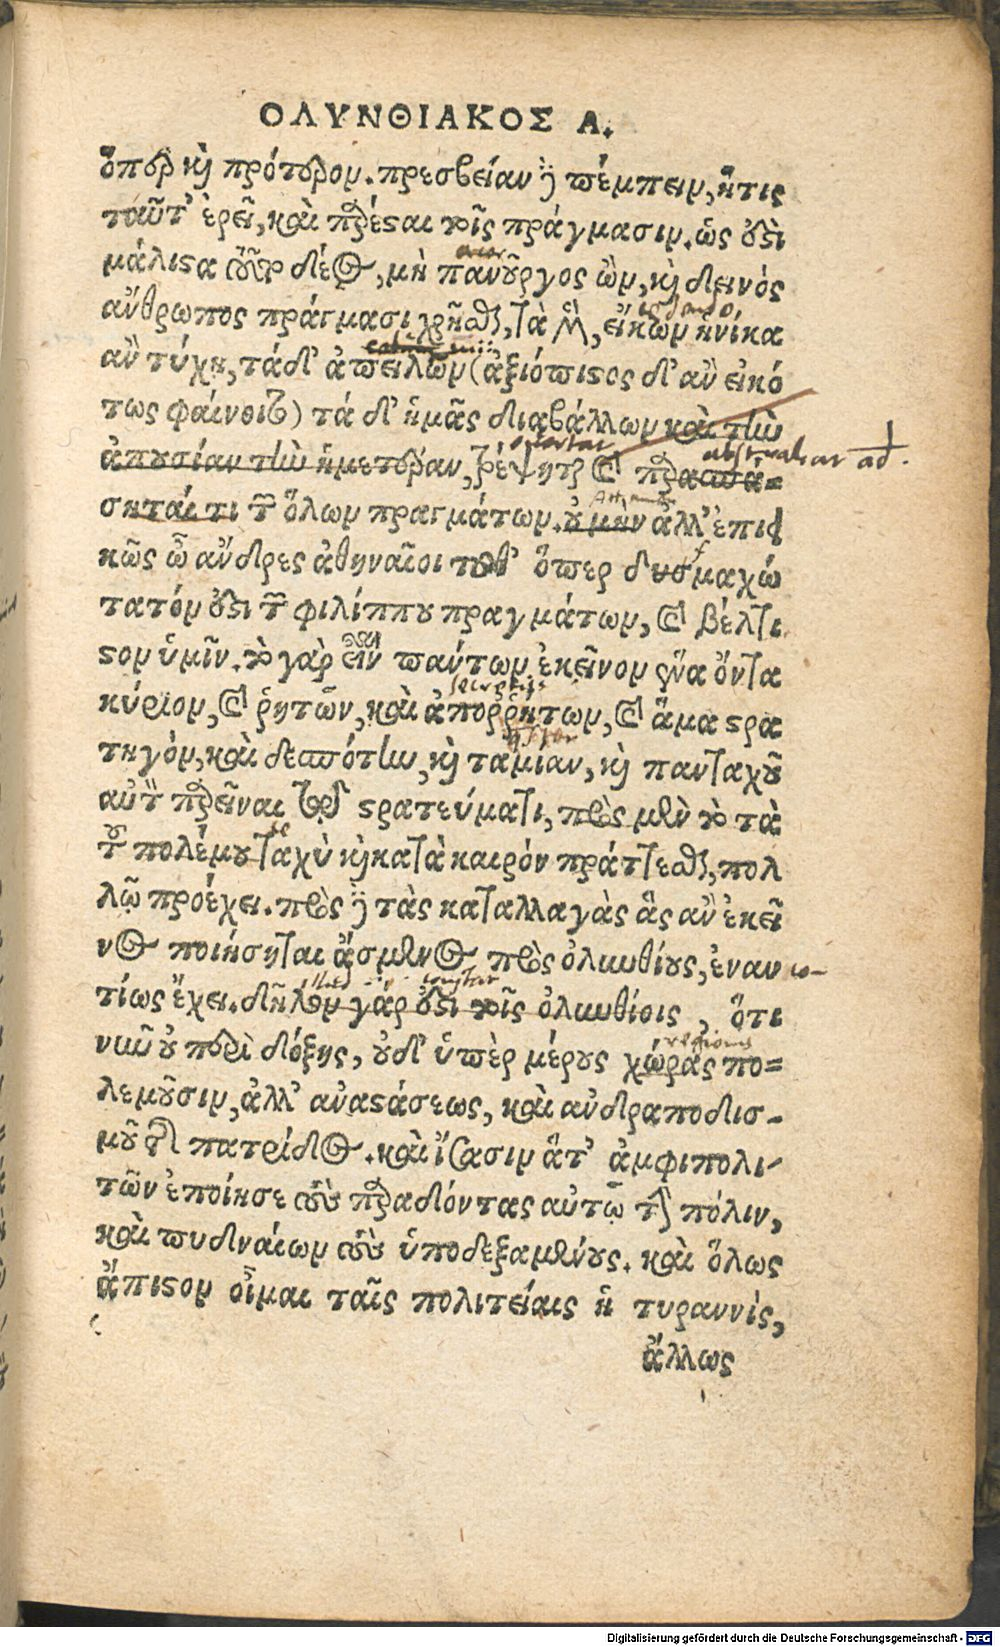 ΟΛΥΝΘΙΑΚΟΣ Α.
ὅπερ καὶ πρότερον. πρεσβείαν δὲ πέμπειν, ἥτις
ταῦτ' ἐρεῖ, καὶ παρέσται τοῖς πράγμασιν. ὡς ἔστι
μάλιστα τοῦτο δέος, μὴ πανοῦργος ὢν, καὶ δεινὸς
ἄνθρωπος πράγμασι χρῆσθαι, τὰ μὲν, εἴκων ἡνίκα
ἂν τύχῃ, τὰ δ' ἀπειλῶν (ἀξιόπιστος δ' ἂν εἰκό
τως φαίνοιτο) τὰ δ' ἡμᾶς διαβάλλων καὶ τὴν
ἀπουσίαν τὴν ἡμετέραν, τρέψηται καὶ παρασπά=
σηταί τι τῶν ὅλων πραγμάτων. οὐ μὴν ἀλλ' ἐπιει
κῶς ὦ ἄνδρες ἀθηναῖοι τοῦθ' ὅπερ δυσμαχώ
τατόν ἐστι τῶν φιλίππου πραγμάτων, καὶ βέλτι
στον ὑμῖν. τὸ γὰρ εἶναι πάντων ἐκεῖνον ἕνα ὄντα
κύριον, καὶ ῥητῶν, καὶ ἀπορρήτων, καὶ ἅμα στρα
τηγὸν, καὶ δεσπότην, καὶ ταμίαν, καὶ πανταχοῦ
αὐτὸν παρεῖναι τῷ στρατεύματι, πρὸς μὲν τὸ τὰ
τοῦ πολέμου ταχὺ καὶ κατὰ καιρὸν πράττεσθαι, πολ
λῷ προέχει. πρὸς δὲ τὰς καταλλαγὰς ἃς ἂν ἐκεῖ
νος ποιήσηται ἄσμενος πρὸς ὀλυνθίους, ἐναν
τίως ἔχει. δῆλον γάρ ἐστι τοῖς ὀλυνθίοις, ὅτι
νῦν οὐ περὶ δόξης, οὐδ' ὑπὲρ μέρους χώρας πο=
λεμοῦσιν, ἀλλ' ἀναστάσεως, καὶ ἀνδραποδισ-
μοῦ τῆς πατρίδος. καὶ ἴσασιν ἅτ' ἀμφιπολι-
τῶν ἐποίησε τοὺς παραδόντας αὐτῷ τὴν πόλιν,
καὶ πυδναίων τοὺς ὑποδεξαμένους. καὶ ὅλως
ἄπιστον οἶμαι ταῖς πολιτείαις ἡ τυραννὶς,
ἄλλως
Digitalisierung gefördert durch die Deutsche Forschungsgemeinschaft - DFG